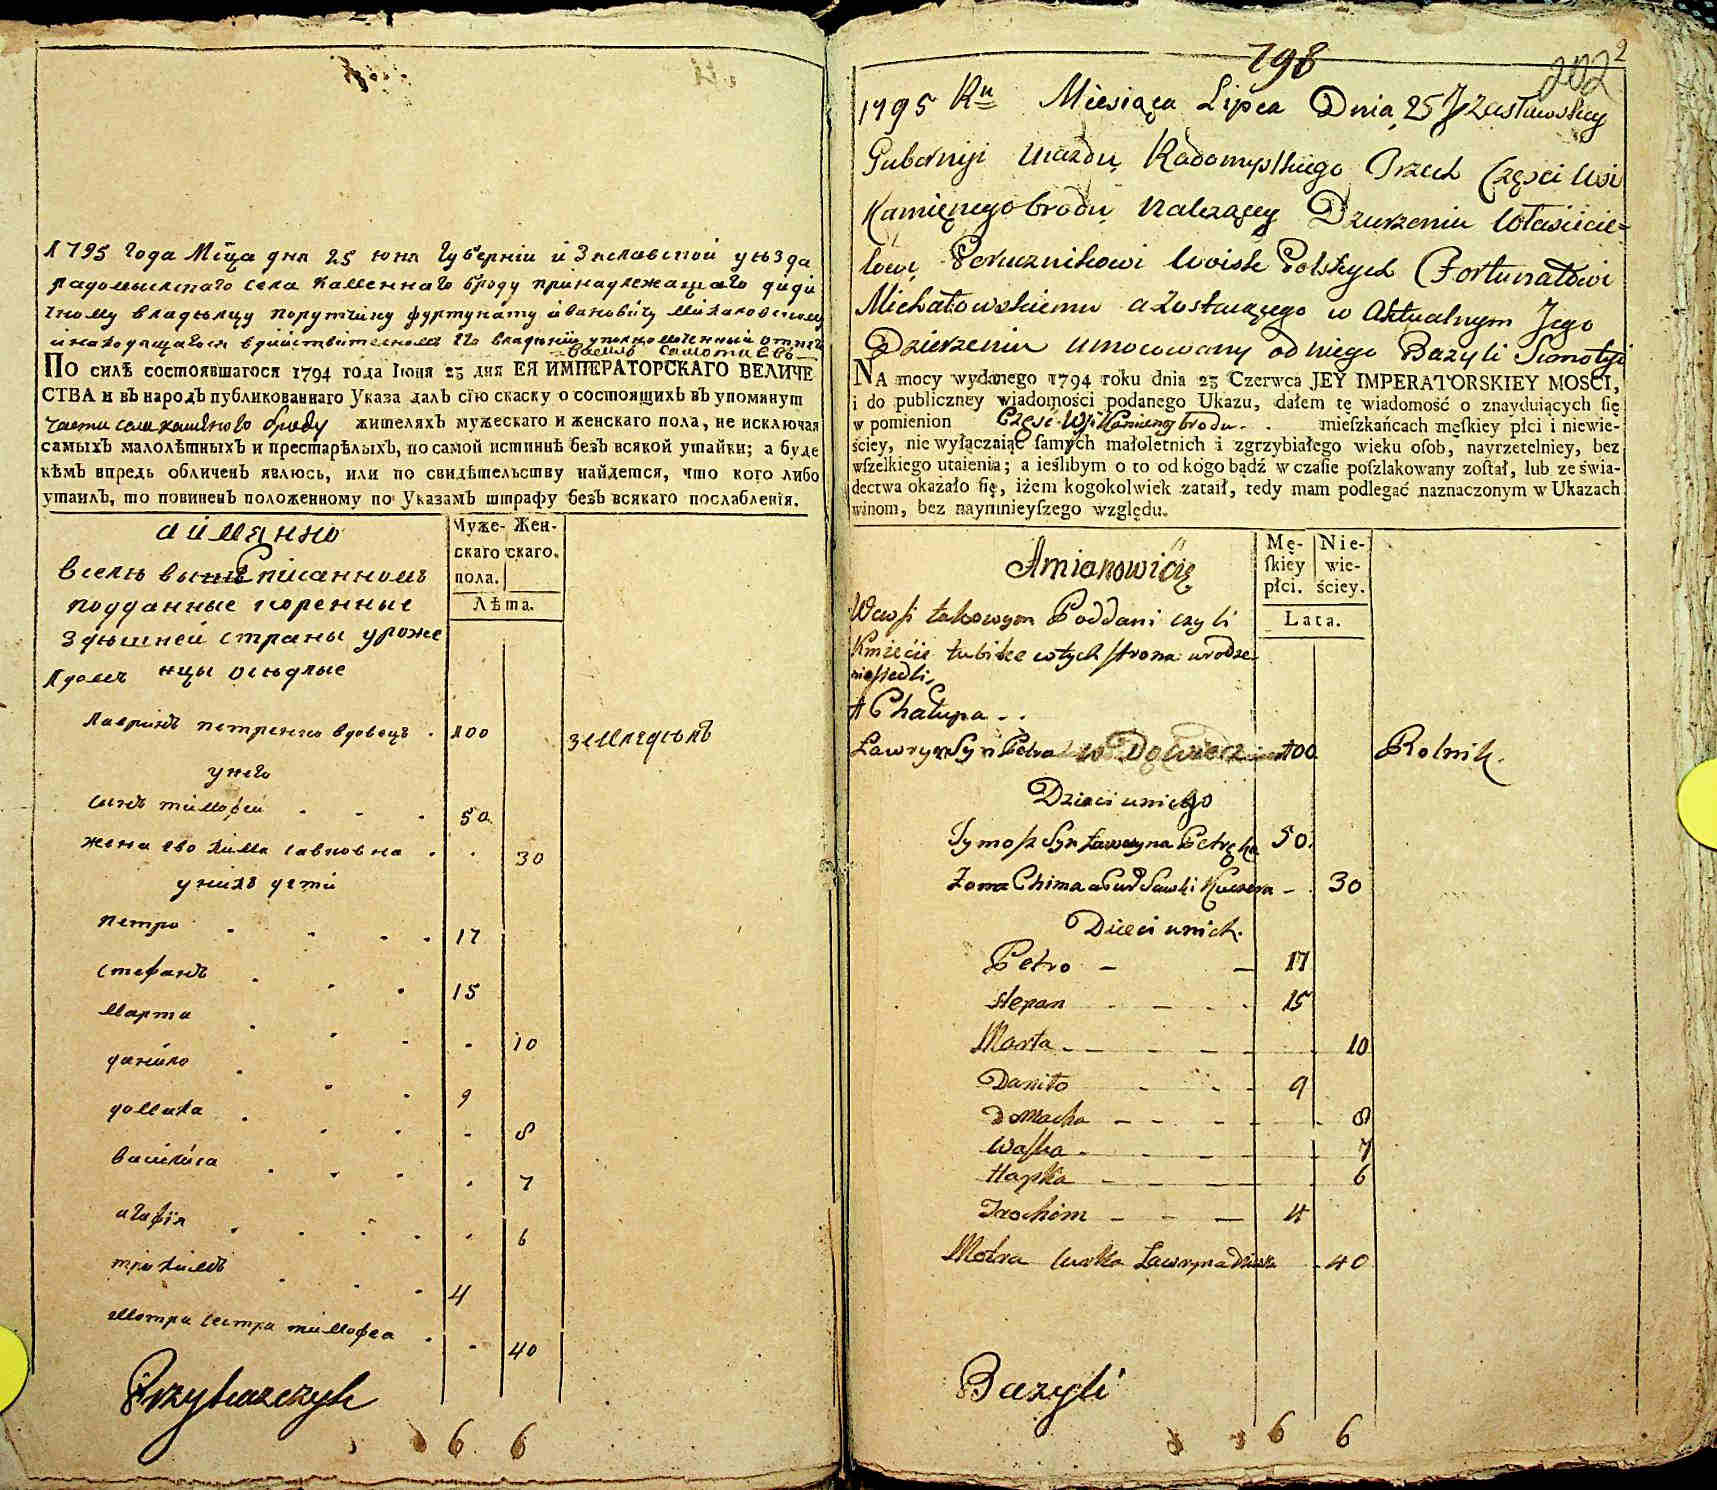 1795 года Мсца дня 25 юня губерніи Изяславской уѣзда
радомыслскаго села каменнаго броду принадлежащаго диди
чному владѣлцу поручику фуртунату ивановичу михаловскому
и находящагося в дійствителномъ его владѣніи уполномоченный от него
По силѣ состоявшагося 1794 года Іюня 23 дня ЕЯ ИМПЕРАТОРСКАГО ВЕЛИЧЕ
СТВА и въ народъ публикованнаго Указа далъ сію скаску о состоящихъ въ упомянут
части села каменного броду жителяхъ мужескаго и женскаго пола, не исключая
самыхъ малолѣтныхъ и престарѣлыхъ, по самой истиннѣ безъ всякой утайки; а буде
кѣмъ впредь обличенъ явлюсь, или по свидѣтельству найдется, что кого либо
утаилъ, то повиненъ положенному по Указамъ штрафу безъ всякаго послабленія.
а имянно
Муже- Жен-
скаго скаго.
пола.
Лѣта.
в селѣ вышеписанномъ
подданные коренные
здѣшней страны уроже
нцы осѣдлые
1 домъ
лавринъ петренко вдовецъ 100 земледѣлъ
у него
сынъ тимофей 50
жена ево хима савковна 30
у нихъ дети
петро 17
стефанъ 15
марта 10
данило 9
домаха 8
василиса 7
агафія 6
трохимъ 4
мотра сестра тимофея 40
Przyłuszczyk
6 6
798
202
2
1795 Ru Miesiąca Lipca Dnia 25 Zasławskiey
Guberniji Uiazdu Radomyslskiego Przed Części Wsi
Kamięnegobrodu Nalezącey Dzierzeniu Własicie=
lowi Porucznikowi Woisk Polskych Fortunatowi
Michałowskiemu a zostaiącego w Aktualnym Jego
Dzierzeniu umocowany od niego Bazyli
NA mocy wydanego 1794 roku dnia 23 Czerwca JEY IMPERATORSKIEY MOSCI,
i do publiczney wiadomości podanego Ukazu, dałem tę wiadomość o znayduiących się
w pomienion Częsć Wsi Kamieneg brodu mieszkańcach męskiey płci i niewie-
ściey, nie wyłączaiąc samych małoletnich i zgrzybiałego wieku osob, nayrzetelniey, bez
wszelkiego utaienia; a ieślibym o to od kogo bądź w czasie poszlakowany został, lub ze świa-
dectwa okazało się, iżem kogokolwiek zataił, tedy mam podlegać naznaczonym w Ukazach
winom, bez naymnieyszego względu.
Amianowicie
Mę- Nie-
skiey wie-
płci. ściey.
Lata.
W wsi takowym Poddani czyli
Kmiecie tubilce w tych strona urodze
ni osiedli,
1 Chałupa
Lawryn Syn Petra Wdowiec 100 Rolnik.
Dzieci u niego
Tymosz Syn Ławryna Petręka 50
Zona Chima a Cur Sawki 30
Dzieci u nich.
Petro 17
Stepan 15
Marta 10
Daniło 9
Domacha 8
Waska 7
Hapka 6
Trochim 4
Motra Curka Lawryna 40
Bazyli
6 6